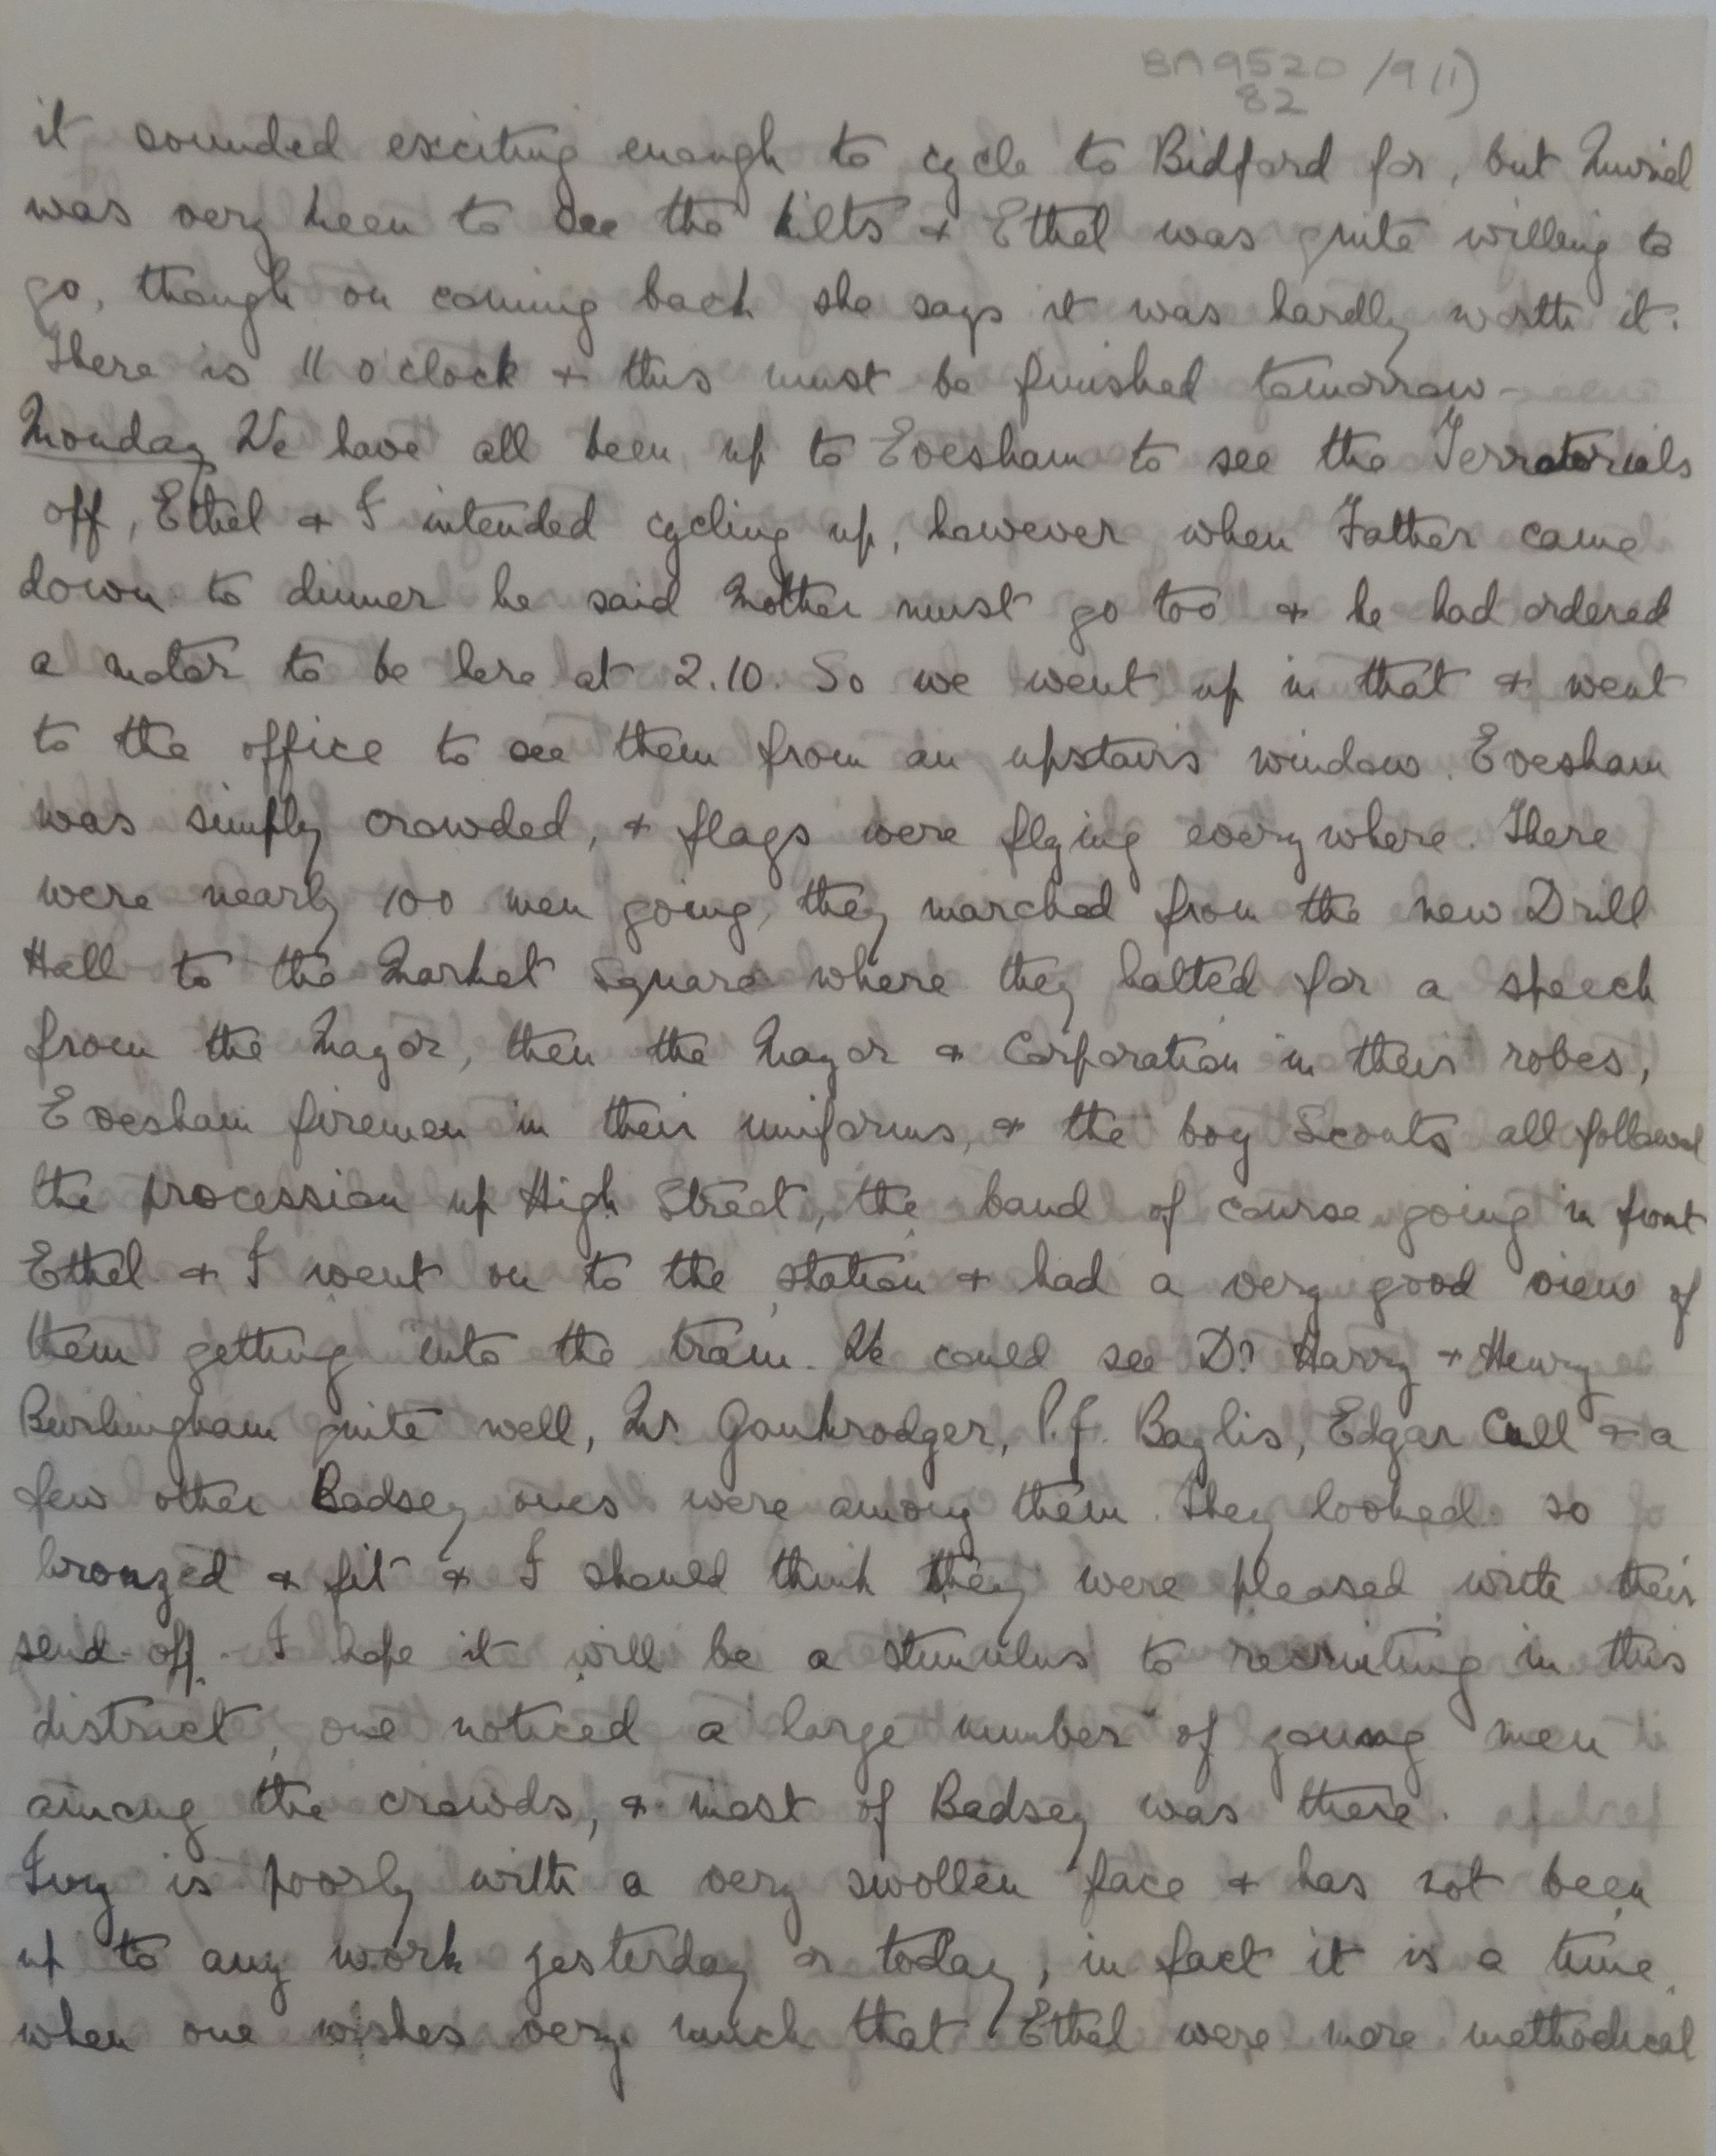 BA9520/9(1)
82
it sounded exciting enough to cycle to Bidford for, but Muriel
was very keen to see the kilts & Ethel was quite willing to
go, though on coming back she says it was hardly worth it.
There is 11 o clock & this must be finished tomorrow -
Monday We have all been up to Evesham to see the Terratorials
off, Ethel & I intended cycling up, however when Father came
down to dinner he said Mother must go too & he had ordered
a motor to be here at 2.10. So we went up in that & went
to the office to see them from an upstairs window. Evesham
was simply crowded, & flags were flying everywhere. There
were nearly 100 men going, they marched from the new Drill
Hall to the Market Square where they halted for a speech
from the Mayor, then the Mayor & Corporation in their robes,
Evesham firemen in their uniforms, & the boy Scouts all followed
the procession up High Street, the band of course going in front
Ethel & I went on to the station & had a very good view of
them getting into the train. We could see Dr Harry & Henry
Burlingham quite well, Mr. Gaukrodger, P.J. Baylis, Edgar Cull & a
few other Badsey ones were among them. They looked so
bronzed & fit & I should think they were pleased with their
send-off. I hope it will be a stimulus to recruiting in this
district, one noticed a large number of young men
among the crowds, & most of Badsey was there.
Ivy is poorly with a very swollen face & has not been
up to any work yesterday or today, in fact it is a time
when one wishes very much that Ethel were more methodical